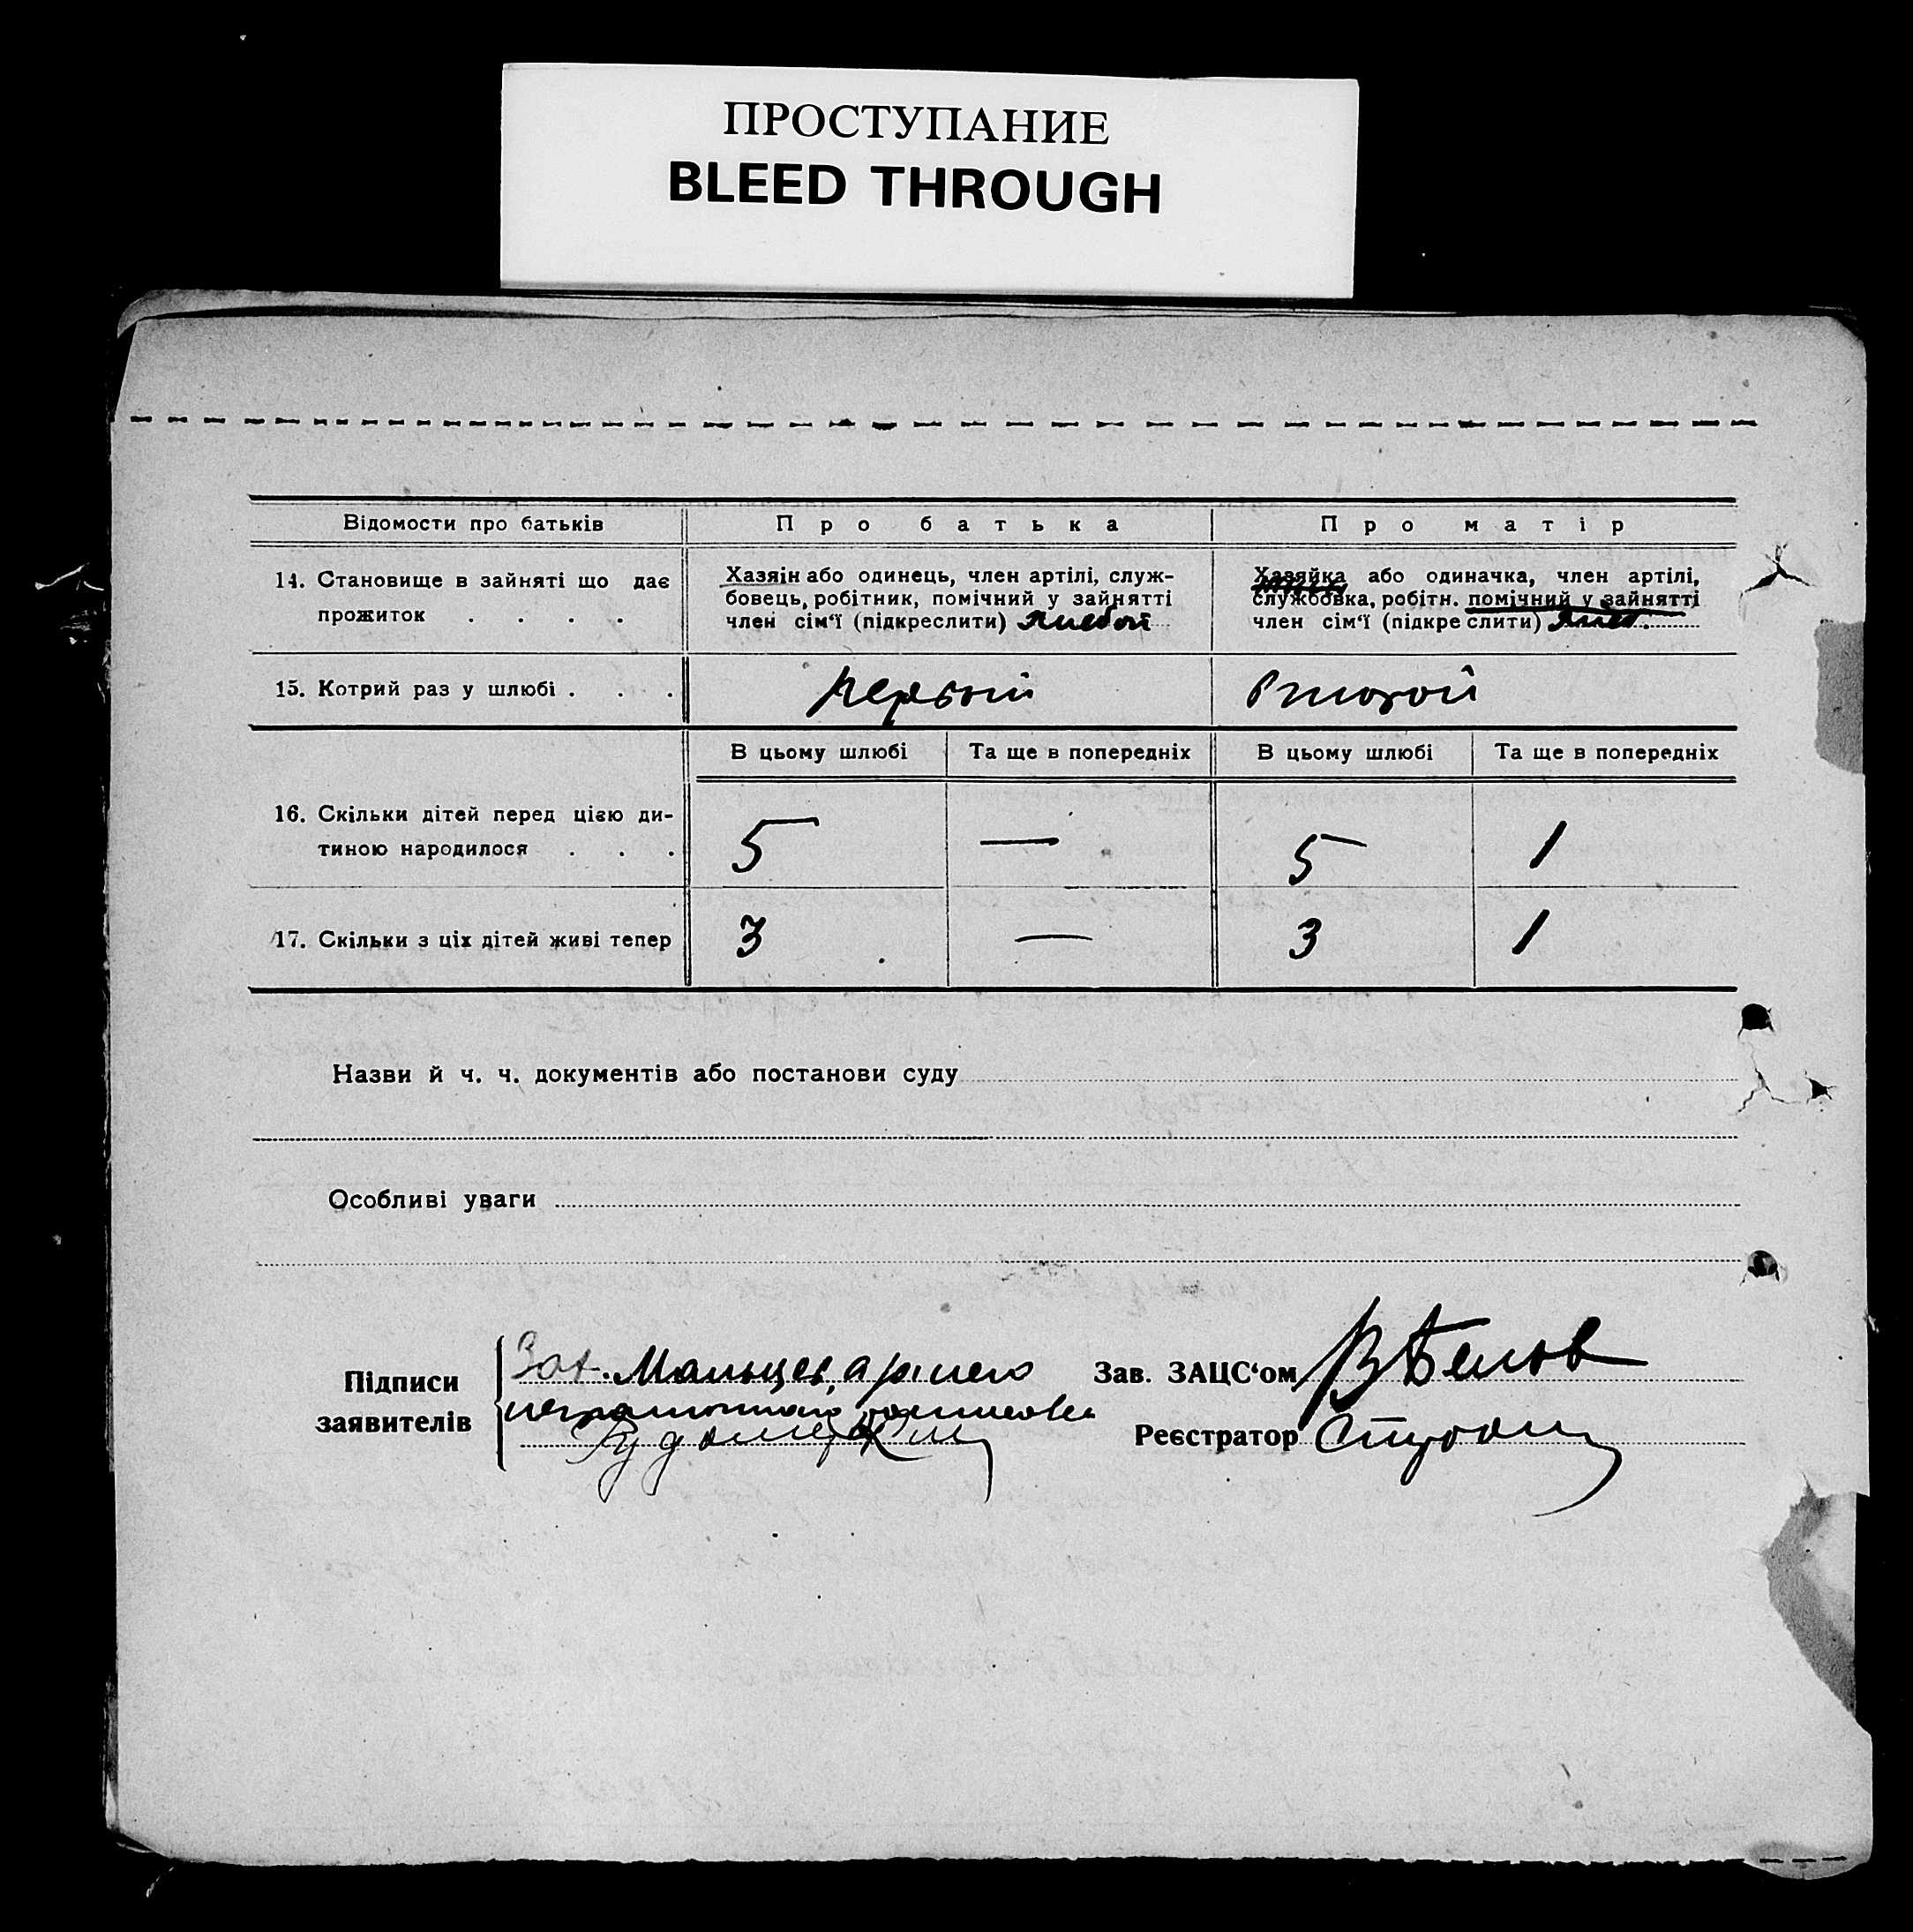 ПРОСТУПАНИЕ
BLEED THROUGH
Відомости про батьків Про батька Про матір
14. Становище в зайняті що дає прожиток . . . .
Хазяін або одинець, член артілі, служ-
бовець, робітник, помічний у зайнятті
член сім‘ї (підкреслити)
Хазяйка або одиначка, член артілі,
службовка, робітн. помічний у зайнятті
член сім‘ї (підкреслити)
15. Котрий раз у шлюбі . . . первый Второй
В цьому шлюбі Та ще в попередніх В цьому шлюбі Та ще в попередніх
16. Скільки дітей перед цією ди-
тиною народилося . . . 5 — 5 1
17. Скільки з ціх дітей живі тепер 3 — 3 1
Назви й ч. ч. документів або постанови суду
Особливі уваги
Підписи
заявителів
За Мальцев
Зав. ЗАЦС‘ом ВБелов
Реєстратор